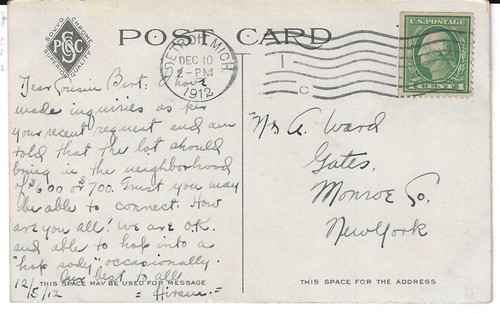 SOUVO CHROME
PSCCo
SUPERIOR QUALITY
POST CARD
DETROIT, MICH
DEC 10
2-PM
1912
1
C
U.S. POSTAGE
1 CENT 1
Dear Cousin Bert: I have
made inquiries as per
your recent request and am
told that the lot should
bring in the neighborhood
of $600 or 700. Trust you may
be able to connect. How
are you all? We are O.K.
and able to hop into a
"hop sody" occasionally.
Our best to all
12/5/12 = Hiram =
THIS SPACE MAY BE USED FOR MESSAGE
Mr A. Ward
Gates,
Monroe Co.
New York
THIS SPACE IS FOR THE ADDRESS